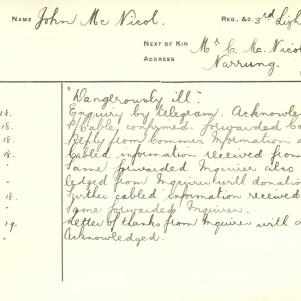 NAME John Mc Nicol. REG., &C. 3rd Ligh
NEXT OF KIN Mr C. Mc Nico
ADDRESS Narrung.
"Dangerously ill".
18. Enquiry by telegram. Acknowle
18. P/Cable, confirmed. Forwarded C
" Reply from Commis Information
18. Cabled information received from
" Same forwarded Inquirer also
" ledged from Inquirer with donatio
18. Further cabled information received
" Same forwarded Inquirer.
19. Letter of thanks from Inquirer with
" Acknowledged.